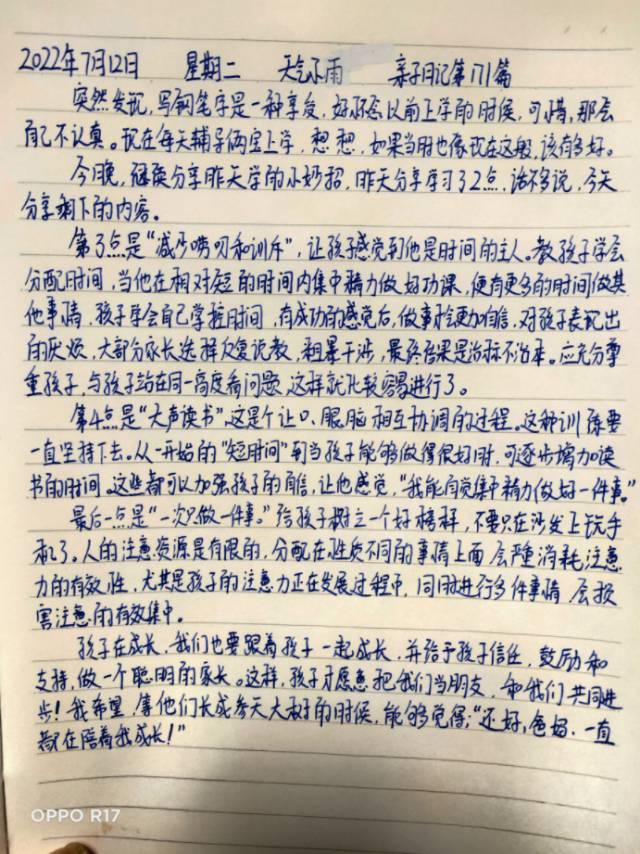 2022年7月12日 星期二 天气小雨 亲子日记第171篇
突然发现,写钢笔字是一种享受,好怀念以前上学的时候,可惜,那会
自己不认真。现在每天辅导俩宝上学,想想,如果当时也像现在这般,该有多好。
今日晚,继续分享昨天学的小妙招,昨天分享学习了2点,话不多说,今天
分享剩下的内容。
第3点是“减少唠叨和训斥”,让孩子感觉到他是时间的主人。教孩子学会
分配时间,当他在相对短的时间内集中精力做好功课,便有更多的时间做其
他事情,孩子学会自己掌控时间,有成功的感觉后,做事会更加自信,对孩子表现出
的厌烦,大部分家长选择反复说教,粗暴干涉,最终结果是治标不治本。应充分尊
重孩子,与孩子站在同一高度看问题,这样就比较容易进行了。
第4点是“大声读书”这是个让口、眼、脑相互协调的过程。这种训练要
一直坚持下去。从一开始的“短时间”到当孩子能够做得很好时,可逐步增加读
书的时间。这些都可以加强孩子的自信,让他感觉,“我能自觉集中精力做好一件事。”
最后一点是“一次只做一件事。”给孩子树立一个好榜样,不要只在沙发上玩手
机了。人的注意资源是有限的,分配在性质不同的事情上面会严重消耗注意
力的有效性,尤其是孩子的注意力正在发展过程中,同时进行多件事情会损
害注意的有效集中。
孩子在成长,我们也要跟着孩子一起成长,并给予孩子信任,鼓励和
支持,做一个聪明的家长。这样,孩子才愿意把我们当朋友,和我们共同进
步!我希望,等他们长成参天大树的时候,能够觉得:“还好,爸妈,一直
都在陪着我成长!”
OPPO R17